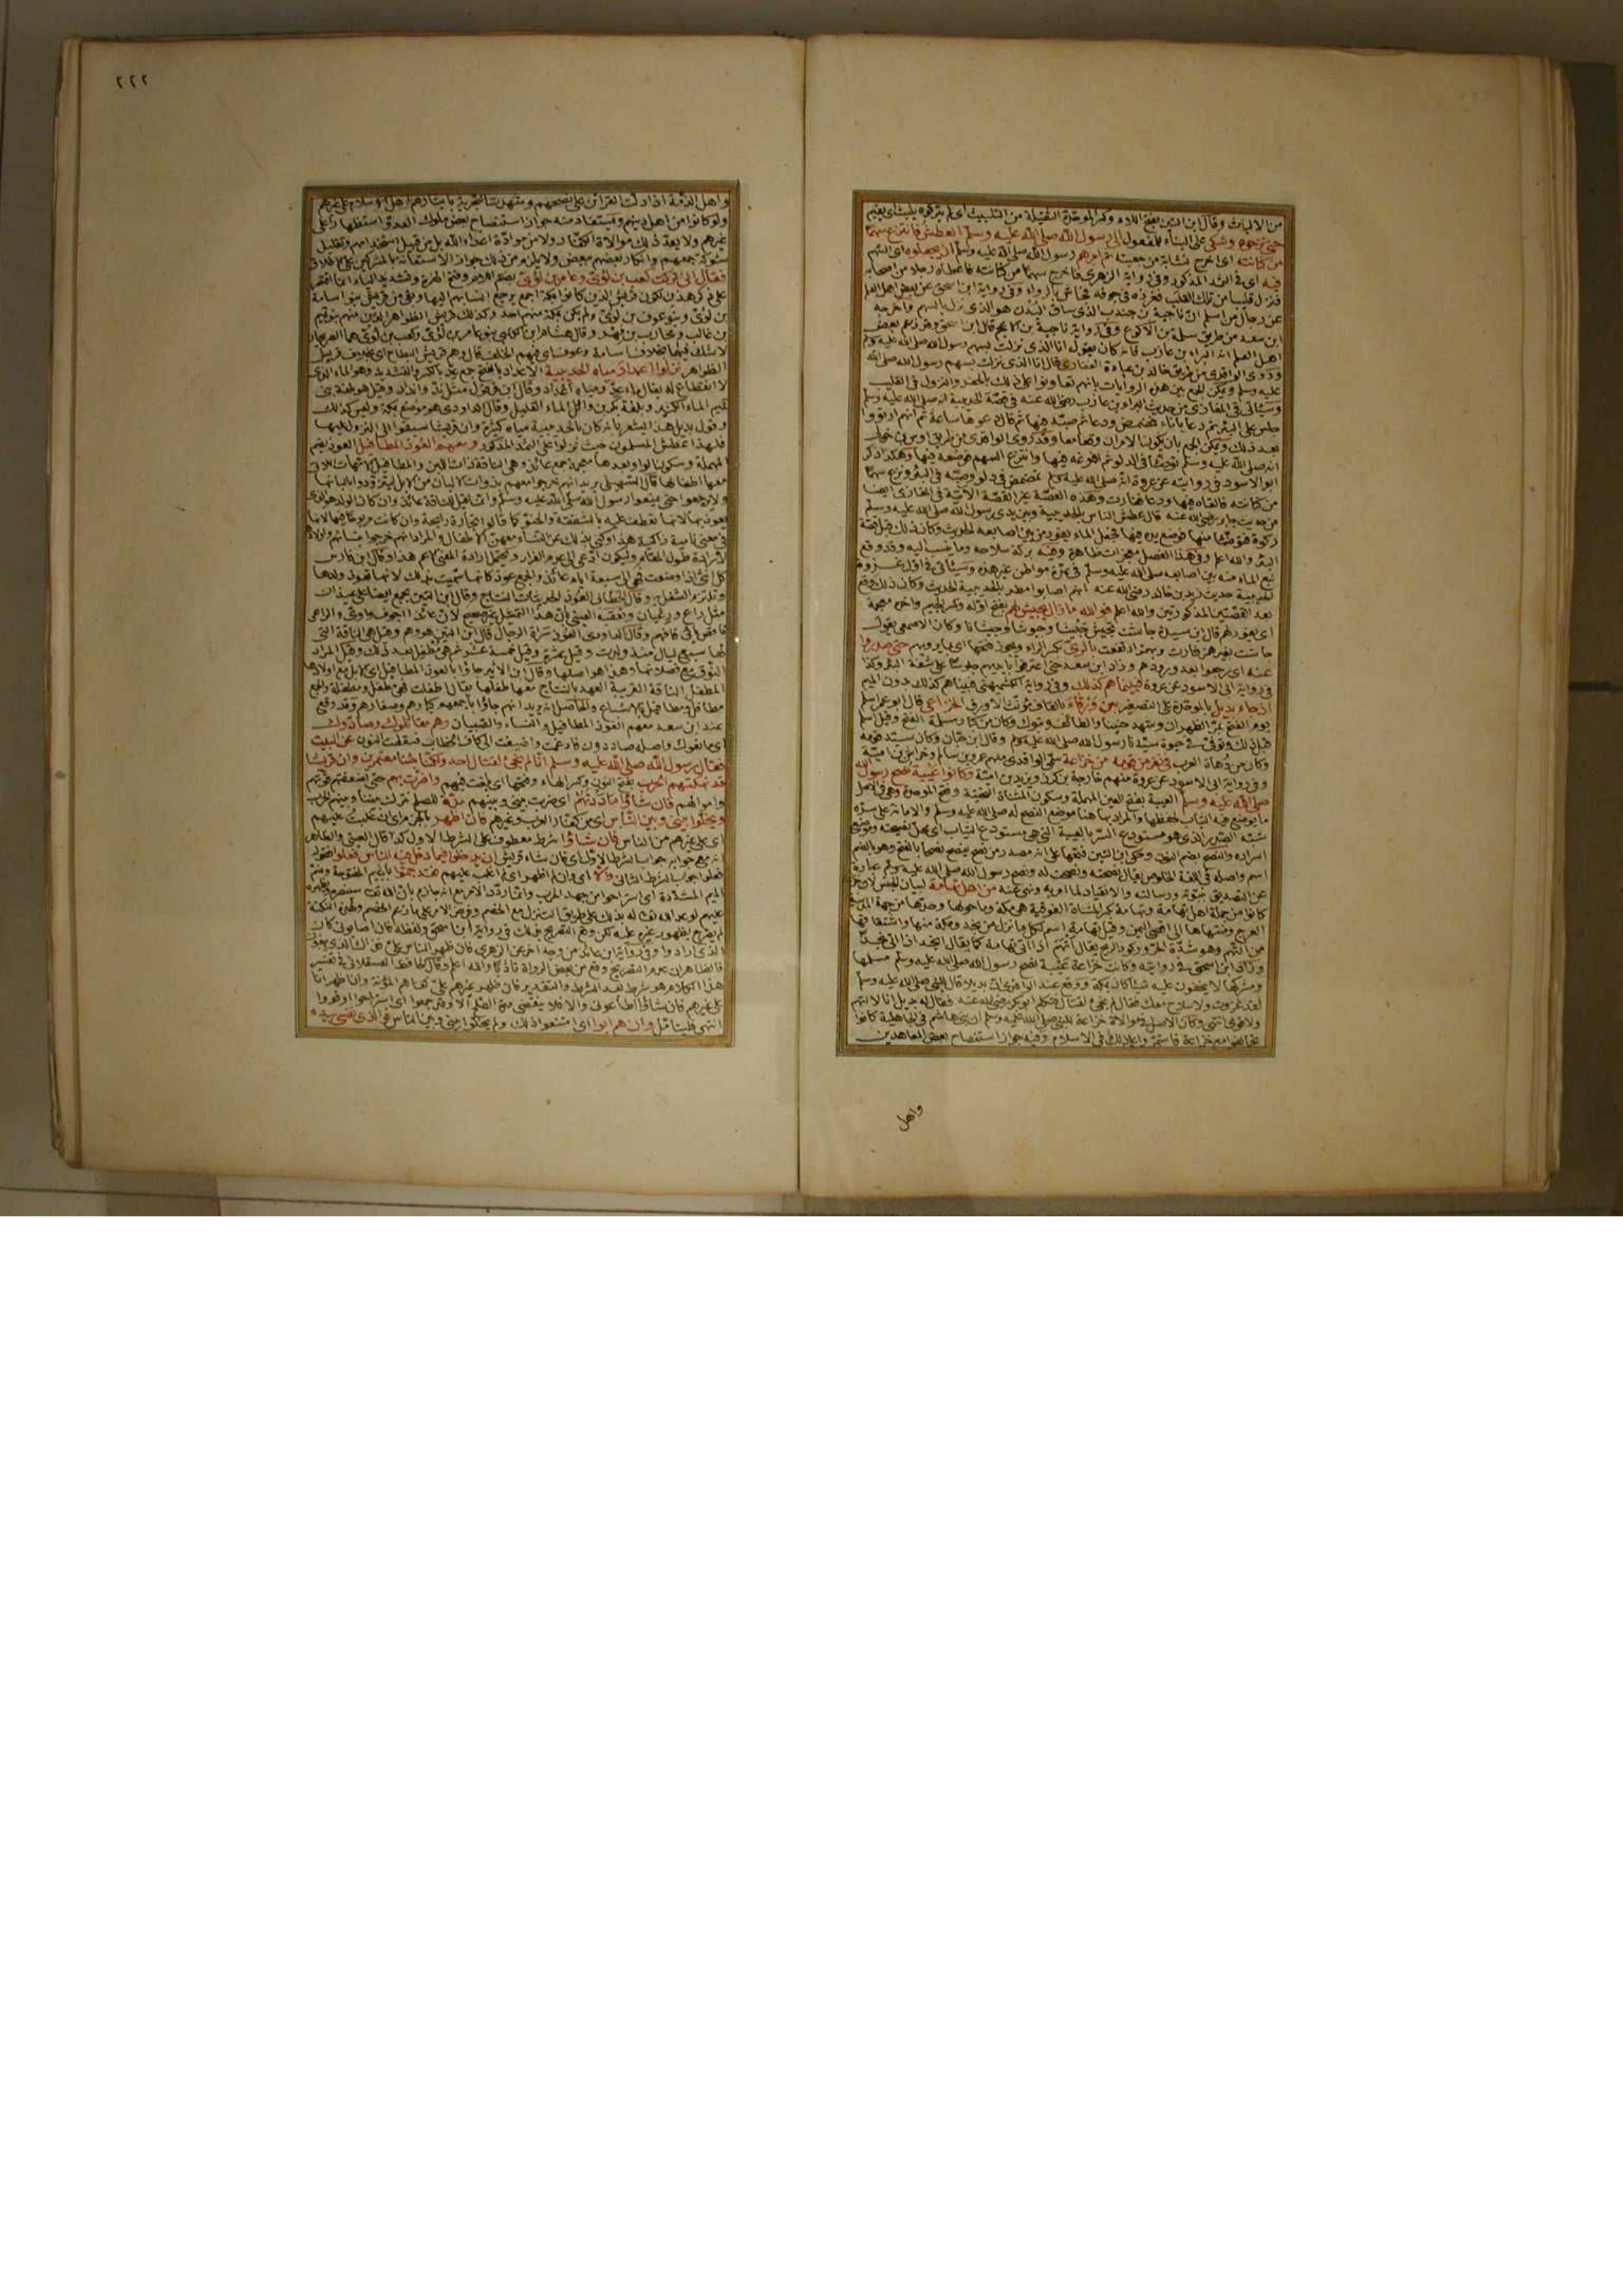 من الالباث وقال ابن التين بفتح اللام وكسر الموحدة الثقيلة من التلبيث اى لم يتركوه يلبث اى يقيم
حتى نزحوه وشكى على البناء للمفعول الى رسول الله صلى الله عليه وسلم العطش فانتزع سهما
من كنانته اى اخرج نشابة من جعبته ثم امرهم رسول الله صلى الله عليه وسلم ان يجعلوه اى السهم
فيه اى فى الثمد المذكور وفى رواية الزهرى فاخرج سهما من كنانته فاعطاه رجلا من اصحابه
فنزل قليبا من تلك القلب فغرزه فى جوفه فجاش بالرواء وفى رواية ابن اسحق عن بعض اهل العلم
عن رجال من اسلم ان ناجية بن جندب الذى ساق البدن هو الذى نزل بالسهم واخرجه
ابن سعد من طريق سلمة بن الاكوع وفى رواية ناجية بن الاعجم قال ابن اسحق وقد زعم بعض
اهل العلم انه البراء بن عازب فانه كان يقول انا الذى نزلت بسهم رسول الله صلى الله عليه وسلم
وروى الواقدى من طريق خالد بن عبادة الغفارى قال انا الذى نزلت بسهم رسول الله صلى الله
عليه وسلم ويمكن الجمع بين هذه الروايات بانهم تعاونوا على ذلك بالحفر والنزول فى القليب
وسيأتى فى المغازى من حديث البراء بن عازب رضى الله عنه فى قصة الحديبية انه صلى الله عليه وسلم
جلس على البئر ثم دعا باناء فمضمض ودعا ثم صبه فيها ثم قال دعوها ساعة ثم انهم ارتووا
بعد ذلك ويمكن الجمع بان يكون الامران وقعا معا وقد روى الواقدى من طريق اوس بن خولى
انه صلى الله عليه وسلم توضأ فى الدلو ثم افرغه فيها وانتزع السهم فوضعه فيها وهكذا ذكر
ابو الاسود فى روايته عن عروة انه صلى الله عليه وسلم تمضمض فى دلو وصبه فى البئر ونزع سهما
من كنانته فالقاه فيها ودعا ففارت وهذه القصة غير القصة الآتية فى المغازى ايضا
من حديث جابر رضى الله عنه قال عطش الناس بالحديبية وبين يدى رسول الله صلى الله عليه وسلم
ركوة فتوضأ منها فوضع يده فيها فجعل الماء يفور من بين اصابعه الحديث وكان ذلك قبل قصة
البئر والله اعلم وفى هذا الفصل معجزات ظاهرة وفيه بركة سلاحه وما ينسب اليه وقد وقع
نبع الماء منه بين اصابعه صلى الله عليه وسلم فى عدة مواطن غير هذه وسيأتى فى اول غزوة
الحديبية حديث زيد بن خالد رضى الله عنه انهم اصابوا مطر بالحديبية الحديث وكان ذلك وقع
بعد القصتين المذكورتين والله اعلم فوالله ما زال يجيش لهم بفتح اوله وكسر الجيم واخره معجمة
اى يفور لهم قال ابن سيدة جاشت تجيش جيشا وجيوشا وجيشانا وكان الاصمعى يقول
جاشت بغير همز فارت وبهمز ارتفعت بالرى بكسر الراء ويجوز فتحها اى بما يرويهم حتى صدروا
عنه اى رجعوا بعد ورودهم وزاد ابن سعد حتى اغترفوا بآنيتهم جلوسا على شفة البئر وكذا
فى رواية ابى الاسود عن عروة فبينما هم كذلك وفى رواية الكشميهنى فبيناهم كذلك دون الميم
اذ جاء بديل بالموحدة على التصغير بن ورقاء بالقاف مؤنث الاورق الخزاعى قال ابو عمر اسلم
يوم الفتح بمر الظهران وشهد حنينا والطائف وتبوك وكان من كبار مسلمة الفتح وقيل اسلم
قبل ذلك وتوفى فى حيوة سيدنا رسول الله صلى الله عليه وسلم وقال ابن حبان وكان سيد قومه
وكان من دهاة العرب فى نفر من قومه من خزاعة سمى الواقدى منهم عمرو بن سالم وخراش بن امية
وفى رواية ابى الاسود عن عروة منهم خارجة بن كرز ويزيد بن امية وكانوا عيبة نصح رسول الله
صلى الله عليه وسلم العيبة بفتح العين المهملة وسكون المثناة التحتية وفتح الموحدة وهى فى الاصل
ما يوضع فيه الثياب لحفظها والمراد بها هنا موضع النصح له صلى الله عليه وسلم والامانة على سره
شبه الصدر الذى هو مستودع السر بالعيبة التى هى مستودع الثياب اى محل نصيحته وموضع
اسراره والنصح بضم النون وحكى ابن التين فتحها على انه مصدر من نصح ينصح نصحا بالفتح وهو بالضم
اسم واصله فى اللغة الخلوص يقال نصحته ونصحت له ونصح رسول الله صلى الله عليه وسلم عبارة
عن التصديق بنبوته ورسالته والانقياد لما امر به ونهى عنه من اهل تهامة لبيان الجنس لان خزاعة
كانوا من جملة اهل تهامة وتهامة بكسر المثناة الفوقية هى مكة وما حولها وحدها من جهة المدينة
العرج ومنتهاها الى اقصى اليمن وقيل تهامة اسم لكل ما نزل من نجد ومكة منها واشتقاقها
من التهم وهو شدة الحر وركود الريح يقال اتهم اذا اتى تهامة كما يقال انجد اذا اتى نجدا
وزاد ابن اسحق فى روايته وكانت خزاعة عيبة نصح رسول الله صلى الله عليه وسلم مسلمها
ومشركها لا يخفون عليه شيئا كان بمكة ووقع عند الواقدى ان بديلا قال للنبى صلى الله عليه وسلم
لقد غزوت ولا سلاح معك فقال لم نجئ لقتال فتكلم ابو بكر رضى الله عنه فقال له بديل انا لا اتهم
ولا قومى انتهى وكان الاصل فى موالاة خزاعة للنبى صلى الله عليه وسلم ان بنى هاشم فى الجاهلية كانوا
تحالفوا مع خزاعة فاستمروا على ذلك فى الاسلام وفيه جواز استنصاح بعض المعاهدين
واهل
٢٢٢
واهل الذمة اذا دلت القرائن على نصحهم وشهدت التجربة بايثارهم اهل الاسلام على غيرهم
ولو كانوا من اهل دينهم ويستفاد منه جواز استنصاح بعض ملوك العدو استظهارا على
غيرهم ولا يعد ذلك موالاة الكفار ولا من موادة اعداء الله بل من قبيل استخدامهم وتقليل
شوكة جمعهم وانكار بعضهم ببعض ولا يلزم من ذلك جواز الاستعانة بالمشركين على الاطلاق
فقال انى تركت كعب بن لؤى وعامر بن لؤى بضم اللام وفتح الهمزة وتشديد الياء انما اقتصر
على ذكر هذين لكون قريش الذين كانوا بمكة اجمع يرجع انسابهم اليهما وبقى من قريش بنو سامة
بن لؤى وبنو عوف بن لؤى ولم يكن بمكة منهم احد وكذلك قريش الظواهر الذين منهم بنو تيم
بن غالب ومحارب بن فهر وقال هشام ابن الكلبى بنو عامر بن لؤى وكعب بن لؤى هما الصريحان
لا شك فيهما بخلاف سامة وعوف اى فيهم الخلف قال وهم قريش البطاح اى بخلاف قريش
الظواهر نزلوا اعداد مياه الحديبية الاعداد بالفتح جمع عد بالكسر والتشديد وهو الماء الذى
لا انقطاع له يقال ماء عد ومياه اعداد وقال ابن قرقول مثل ند وانداد وقيل هو بلغة بنى
تميم الماء الكثير وبلغة بكر بن وائل الماء القليل وقال الداودى هو موضع بمكة وليس كذلك
وقول بديل هذا يشعر بانه كان بالحديبية مياه كثيرة وان قريشا سبقوا الى النزول عليها
فلهذا عطش المسلمون حيث نزلوا على الثمد المذكور ومعهم العوذ المطافيل العوذ بضم
المهملة وسكون الواو بعدها معجمة جمع عائذ وهى الناقة ذات اللبن والمطافيل الامهات اللاتى
معها اطفالها قال السهيلى يريد انهم خرجوا معهم بذوات الالبان من الابل ليتزودوا بالبانها
ولا يرجعوا حتى يمنعوا رسول الله صلى الله عليه وسلم وانما قيل للناقة عائذ وان كان الولد هو الذى
يعوذ بها لانها تعطف عليه بالشفقة والحنو كما قالوا تجارة رابحة وان كانت مربوحا فيها لانها
فى معنى نامية زاكية هذا وكنى بذلك عن النساء معهن الاطفال والمراد انهم خرجوا بنسائهم واولادهم
لارادة طول المقام وليكون ادعى الى عدم الفرار ويحتمل ارادة المعنى الاعم هذا وقال ابن فارس
كل انثى اذا وضعت فهى الى سبعة ايام عائذ والجمع عوذ كانها سميت بذلك لانها تعوذ ولدها
وتلتزم الشغل به وقال الخطابى العوذ الحديثات النتاج وقال ابن التين يجمع ايضا على عيذان
مثل راع ورعيان وتعقبه العينى بان هذا التمثيل غير صحيح لان عائذ اجوف واوى والراعى
ناقص يائى فافهم وقال الداودى العوذ سراة الرجال قال ابن التين هو وهم وقيل هى الناقة التى
لها سبع ليال منذ ولدت وقيل عشرة وقيل خمسة عشر ثم هى مطفل بعد ذلك وقيل المراد
النوق مع فصلانها وهذا هو اصلها وقال ابن الاثير جاؤا بالعوذ المطافيل اى الابل مع اولادها
المطفل الناقة القريبة العهد بالنتاج معها طفلها يقال اطفلت فهى مطفل ومطفلة والجمع
مطافل ومطافيل بالاشباع والحاصل انه يريد انهم جاؤا باجمعهم كبارهم وصغارهم وقد وقع
عند ابن سعد معهم العوذ المطافيل والنساء والصبيان وهم مقاتلوك وصادوك
اى مانعوك واصله صاددون فادغمت واضيفت الى كاف الخطاب فسقطت النون عن البيت
فقال رسول الله صلى الله عليه وسلم انا لم نجئ لقتال احد ولكنا جئنا معتمرين وان قريشا
قد نهكتهم الحرب بفتح النون وكسر الهاء وفتحها اى بلغت فيهم واضرت بهم حتى اضعفتهم قوتهم
واموالهم فان شاؤا ماددتهم اى ضربت بينى وبينهم مدة للصلح نترك بيننا وبينهم الحرب
ويخلوا بينى وبين الناس اى من كفار العرب وغيرهم فان اظهر بالجزم اى ان غلبت عليهم
اى على غيرهم من الناس فان شاؤا شرط معطوف على الشرط الاول كذا قال العينى والظاهر
انه مع جوابه جواب الشرط الاول اى فان شاء قريش ان يدخلوا فيما دخل فيه الناس فعلوا فقوله
فعلوا جواب الشرط الثانى والا اى وان لم اظهر اى لم اغلب عليهم فقد جموا بالجيم المفتوحة وضم
الميم المشددة اى استراحوا من جهد الحرب وانما ردد الامر مع انه جازم بان الله تعالى سينصره ويظهره
عليهم لوعد الله تعالى له بذلك على طريق التنزل مع الخصم وفرض الامر على ما زعم الخصم ولهذه النكتة
لم يصرح بظهور غيره عليه لكن وقع التصريح بذلك فى رواية ابن اسحق ولفظه فان اصابونى كان
الذى ارادوا وفى رواية ابن عائذ من وجه اخر عن الزهرى فان ظهر الناس على فذلك الذى يبغون
فالظاهر ان عدم التصريح وقع من بعض الرواة تأدبا والله اعلم وقال الحافظ العسقلانى فى تفسير
هذا الكلام هو شرط بعد الشرط والتقدير فان ظهر غيرهم على كفاهم المؤنة وان اظهر انا
على غيرهم فان شاؤا اطاعونى والا فلا ينقضى مدة الصلح الا وقد جموا اى استراحوا وقووا
انتهى فليتأمل وان هم ابوا اى امتنعوا ذلك ولم يخلوا بينى وبين الناس فوالذى نفسى بيده